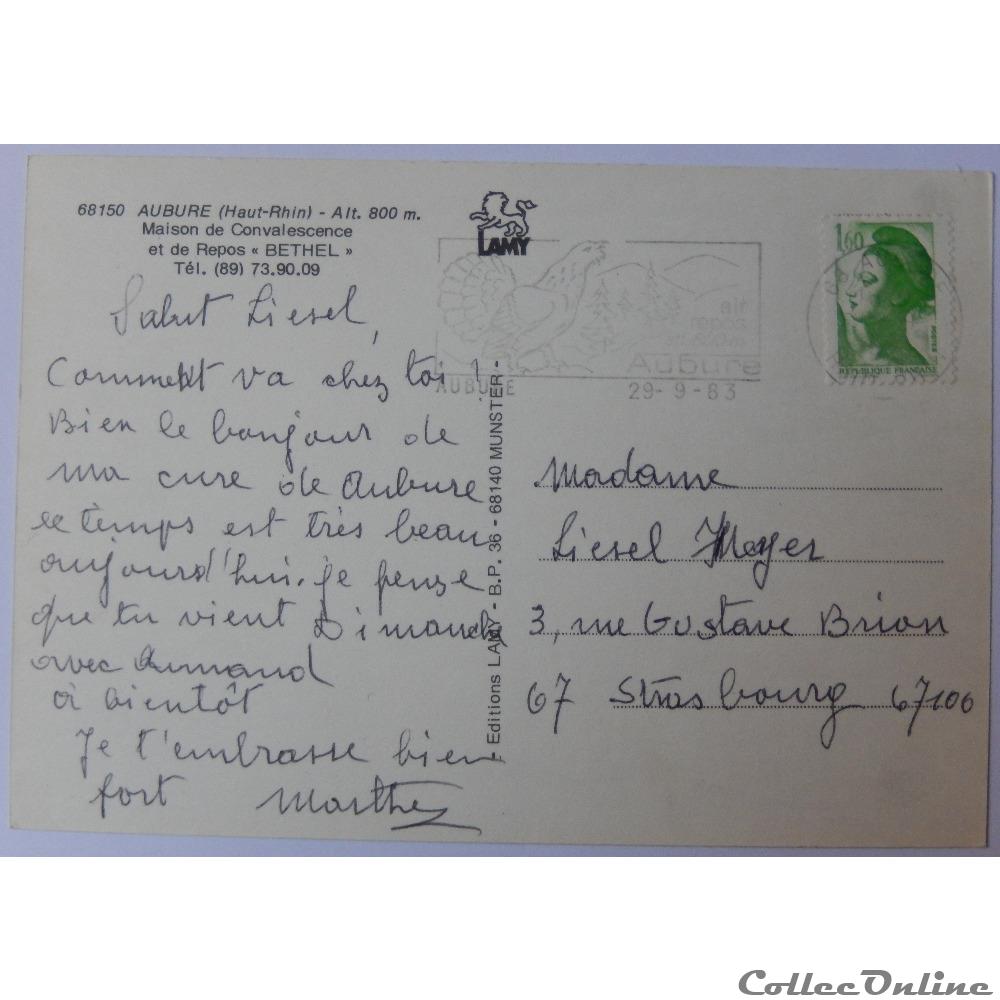 68150 AUBURE (Haut-Rhin) - Alt. 800 m.
Maison de Convalescence
et de Repos « BETHEL »
Tél. (89) 73.90.09
LAMY
air
repos
alt. 800m
Aubure
AUBURE
29-9-83
1,60
POSTES
REPUBLIQUE FRANÇAISE
Salut Liesel,
Comment va chez toi !
Bien le bonjour de
ma cure de Aubure
le temps est très beau
aujourd'hui. je pense
que tu vient Dimanche
avec Armand
à bientôt
Je t'embrasse bien
fort Marthe
- Editions LAMY - B.P. 36 - 68140 MUNSTER -
Madame
Liesel Meyer
3, rue Gustave Brion
67 Strasbourg 67100
CollecOnline